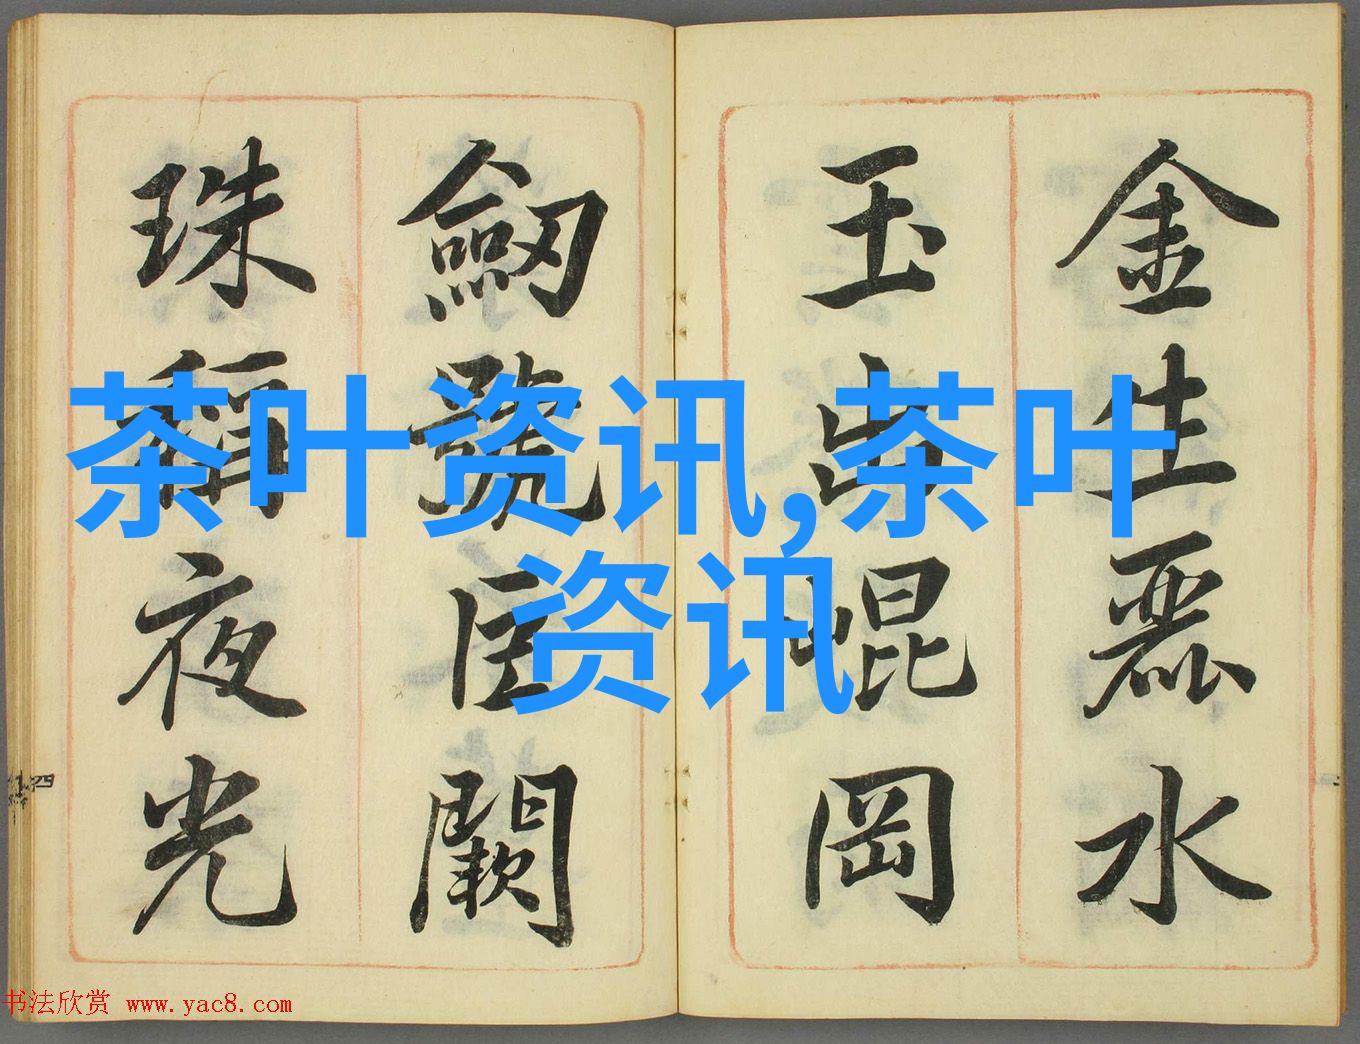 金生麗水
玉出崐岡
劒號巨闕
珠稱夜光
茶叶资讯,茶叶
资讯
四
书法欣赏 www.yac8.com